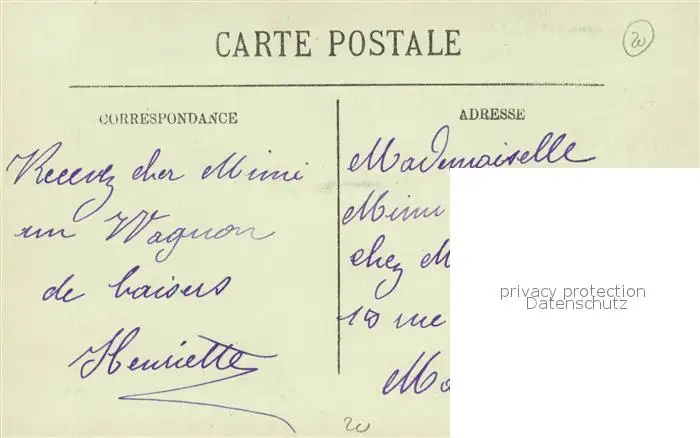 CARTE POSTALE
20
CORRESPONDANCE
Recevez cher Mimi
un Wagnon
de baisers
Henriette
20
ADRESSE
Mademoiselle
Mimi
chez M
18 rue
Ma
privacy protection
Datenschutz